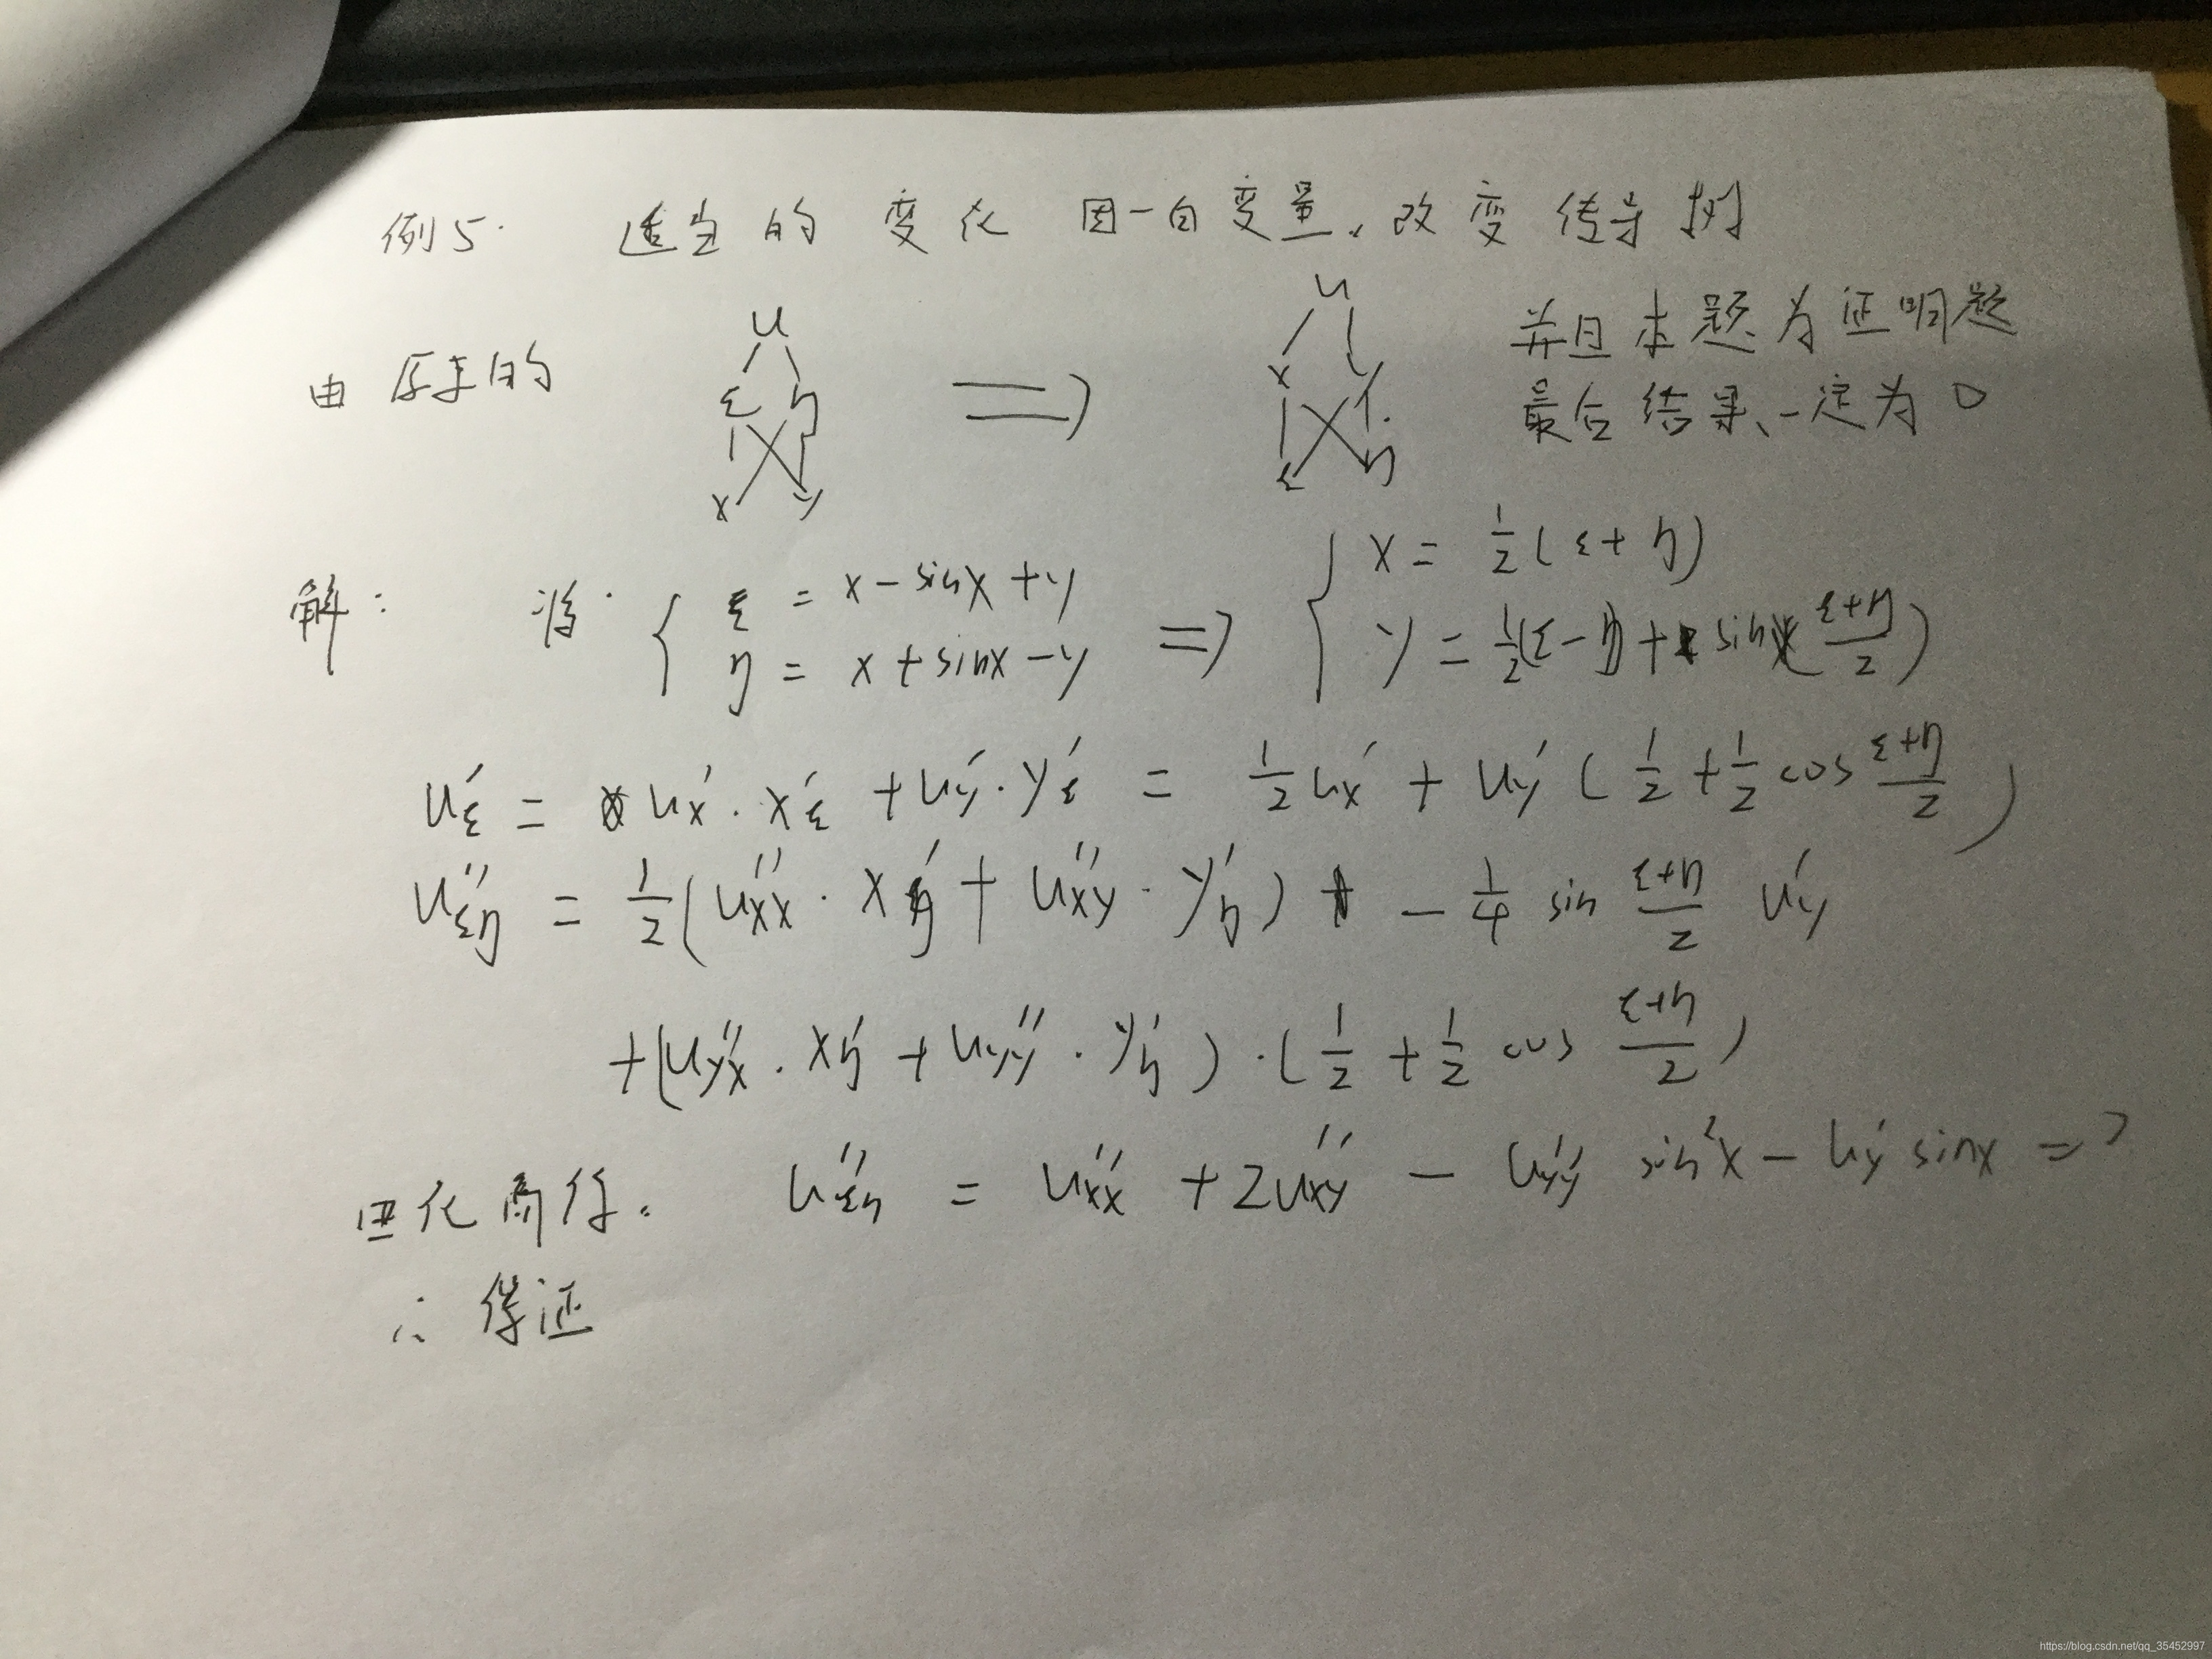 例5. 适当的变化因-自变量、改变传导树
由原来的 u ξ η x y ⇒ u x y ξ η
并且本题为证明题
最后结果、一定为0
解: 将 { ξ = x - sinx + y ⇒ { x = 1/2 (ξ + η)
η = x + sinx - y y = 1/2(ξ - η) + sin(ξ+η/2)
u'ξ = u'x · x'ξ + u'y · y'ξ = 1/2 u'x + u'y (1/2 + 1/2 cos ξ+η/2)
u''ξη = 1/2 (u''xx · x'η + u''xy · y'η) - 1/4 sin ξ+η/2 u'y
+ (u''yx · x'η + u''yy · y'η) · (1/2 + 1/2 cos ξ+η/2)
化简得. u''ξη = u''xx + 2u''xy - u''yy sin²x - u'y sinx =
∴ 得证
https://blog.csdn.net/qq_35452997